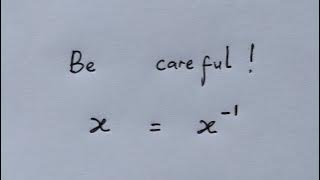 Be careful!
x = x⁻¹